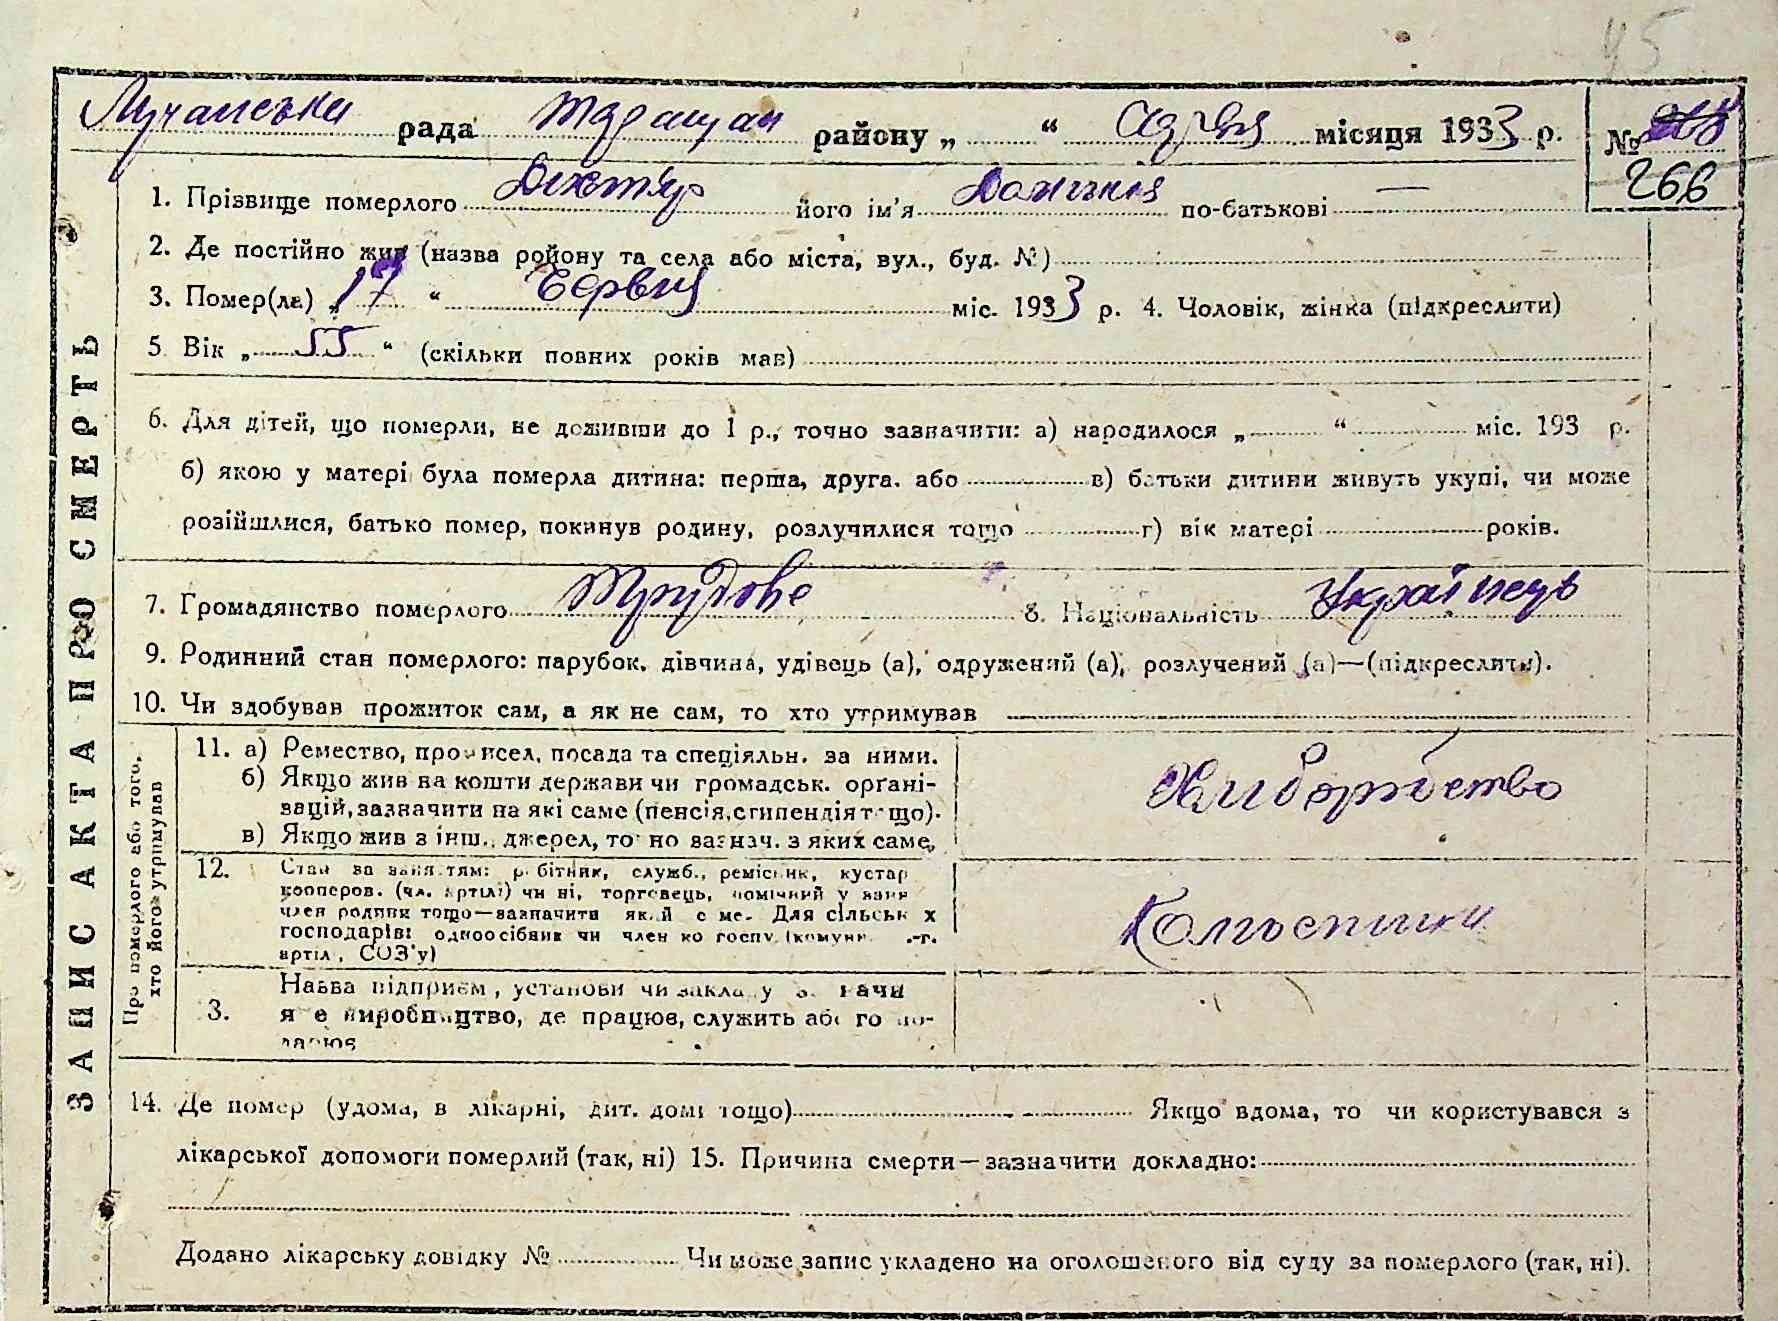 45
Лучанська рада Таращан району „ “ Січня місяця 1933 р. №
266
1. Прізвище померлого Дихтяр його ім'я по-батькові —
2. Де постійно жив (назва ройону та села або міста, вул., буд. №)
3. Помер(ла) „ 17 “ Червня міс. 1933 р. 4. Чоловік, жінка (підкреслити)
5 Вік „ 55 “ (скільки повних років мав)
6. Для дітей, що померли, не доживши до 1 р., точно зазначити: а) народилося „ “ міс. 193 р.
б) якою у матері була померла дитина: перша, друга. або в) батьки дитини живуть укупі, чи може
розійшлися, батько помер, покинув родину, розлучилися тощо г) вік матері років.
7. Громадянство померлого Трудове 8. Національність Українець
9. Родинний стан померлого: парубок. дівчина, удівець (а), одружений (а), розлучений (а)—(підкреслити).
10. Чи здобував прожиток сам, а як не сам, то хто утримував
ЗАПИС АКТА ПРО СМЕРТЬ
Про померлого або того,
хто його утримував
11. а) Ремество, промисел, посада та спеціяльн. за ними.
б) Якщо жив на кошти держави чи громадськ. органі-
зацій, зазначити на які саме (пенсія, стипендія тощо).
в) Якщо жив з інш., джерел, то но вазнач. з яких саме,
Хлиборобство
12. Стан за занятям: робітник, служб., ремісник, кустар
кооперов. (чл. артілі) чи ні, торговець, помічний у
член родини тощо—зазначити який саме. Для сільськ х
господарів: одноосібник чи член
артіл, СОЗ'у)
Колгоспник
3. Назва підприєм, установи чи закладу
виробництво, де працює, служить або
14. Де помер (удома, в лікарні, дит. домі тощо) Якщо вдома, то чи користувався з
лікарської допомоги померлий (так, ні) 15. Причина смерти—зазначити докладно:
Додано лікарську довідку № Чи може запис укладено на оголошеного від суду за померлого (так, ні).